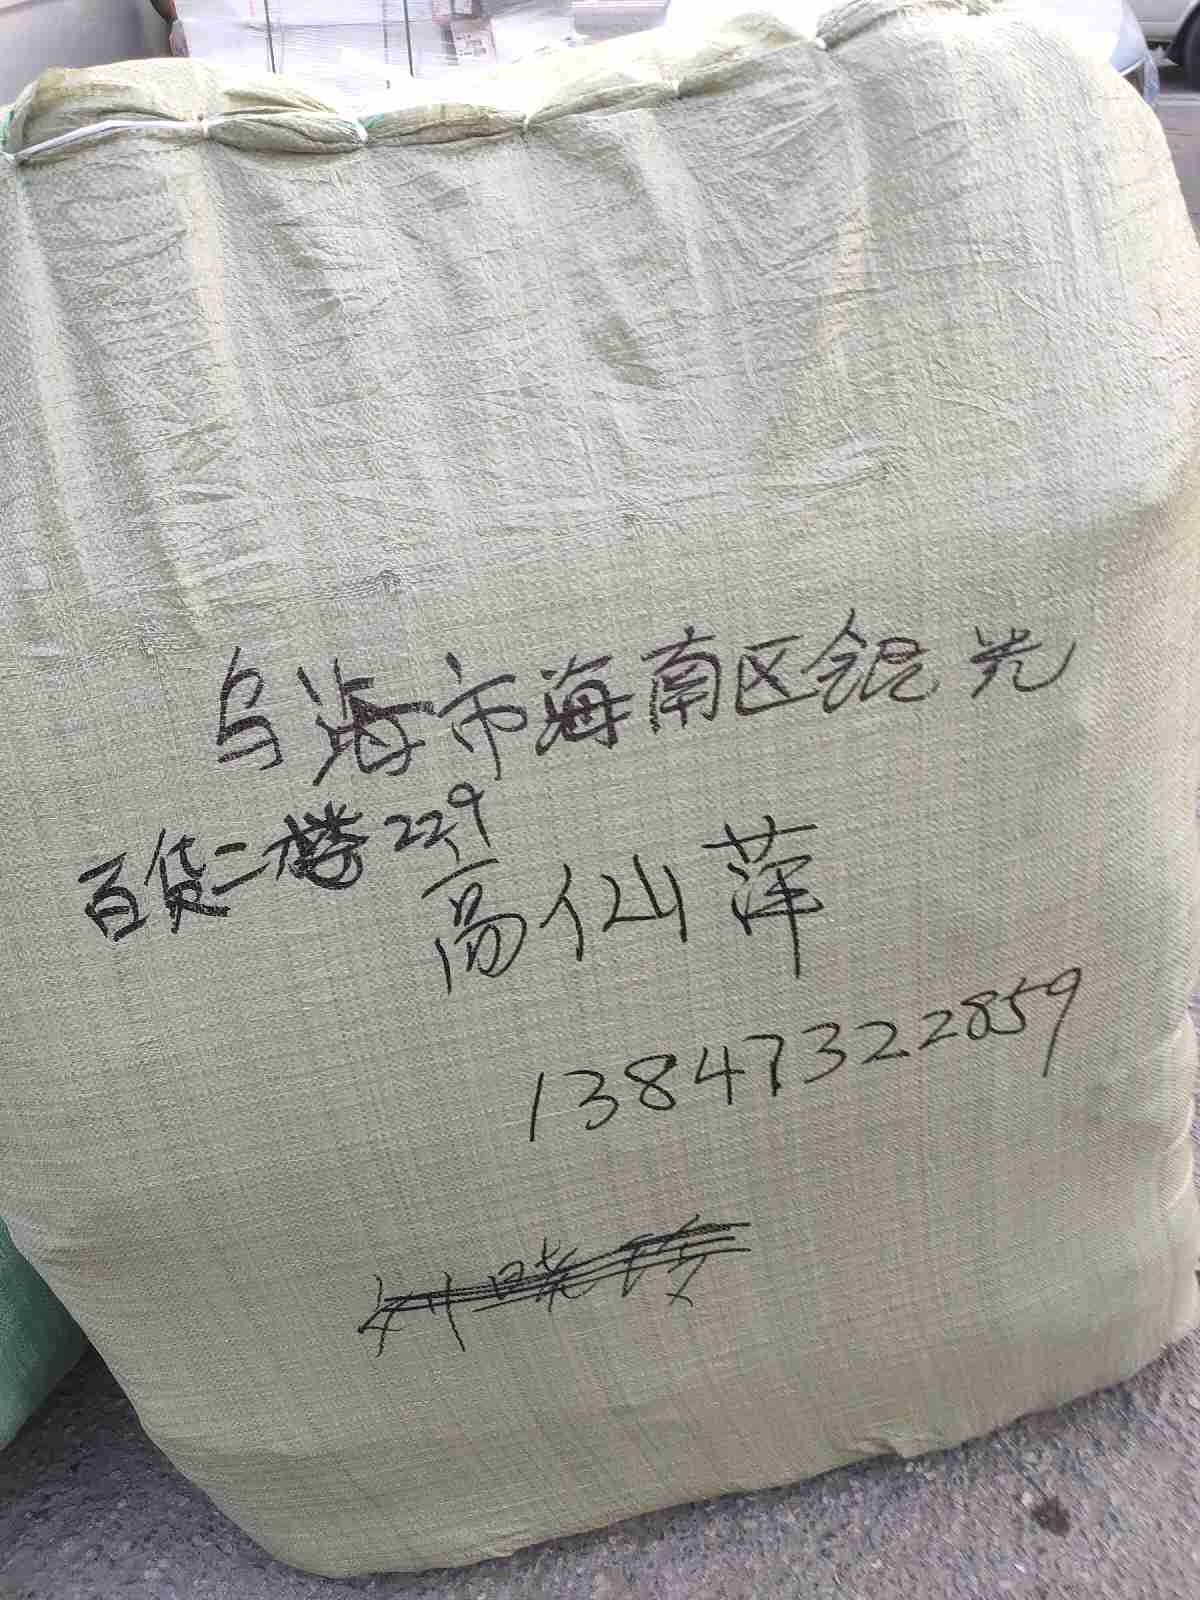 乌海市海南区银光
百货二楼229
高仙萍
13847322859